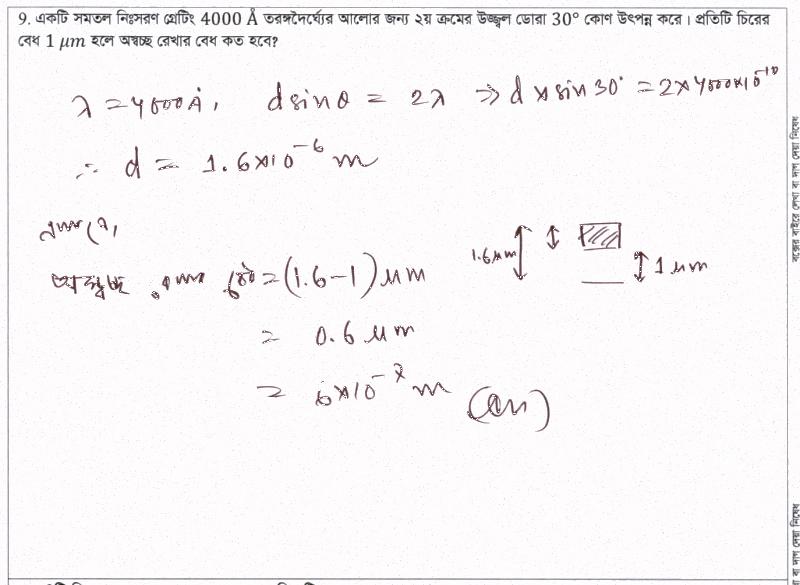 9. একটি সমতল নিঃসরণ গ্রেটিং 4000 Å তরঙ্গদৈর্ঘ্যের আলোর জন্য ২য় ক্রমের উজ্জ্বল ডোরা 30° কোণ উৎপন্ন করে। প্রতিটি চিরের
বেধ 1 μm হলে অস্বচ্ছ রেখার বেধ কত হবে?
λ = 4000 Å, d sin θ = 2λ ⇒ d × sin 30° = 2 × 4000 × 10⁻¹⁰
∴ d = 1.6 × 10⁻⁶ m
1.6 μm
1 μm
অস্বচ্ছ = (1.6 − 1) μm
= 0.6 μm
= 6 × 10⁻⁷ m (Ans)
বক্সের বাইরে লেখা বা দাগ দেয়া নিষেধ
বা দাগ দেয়া নিষেধ